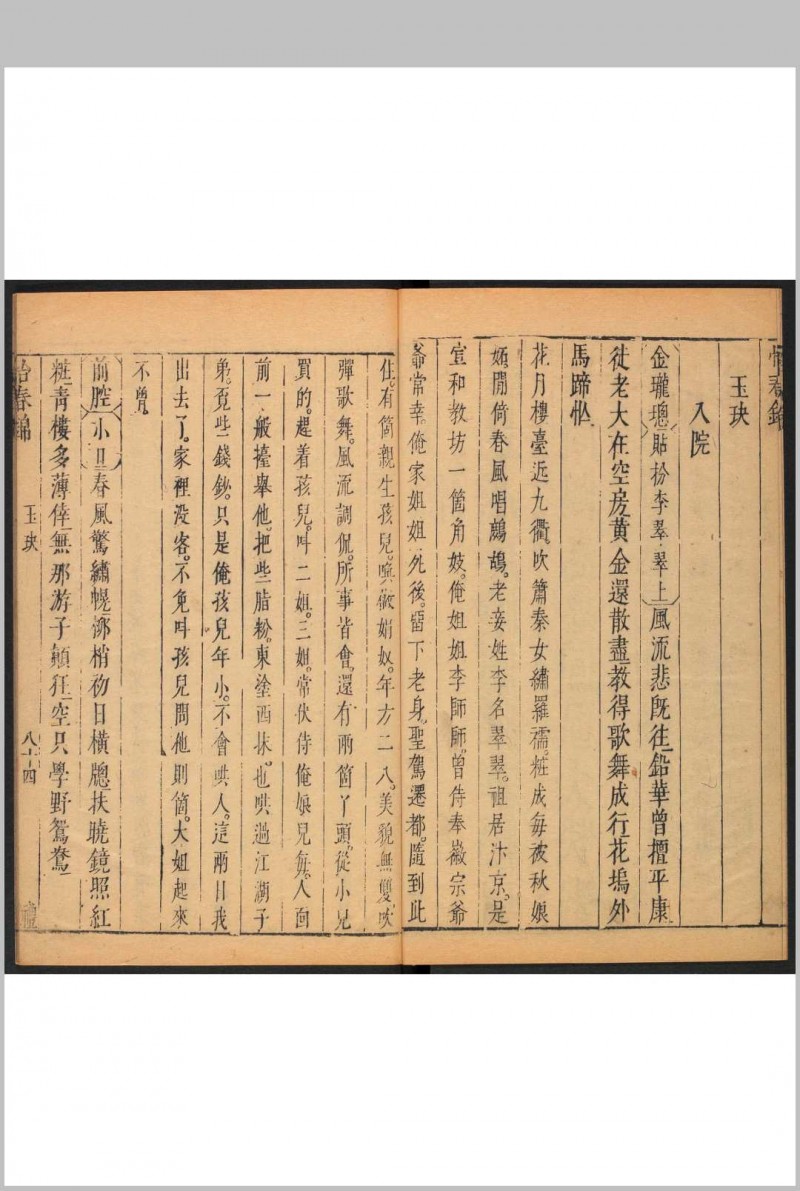 怡春錦
玉玦
入院
金瓏璁貼扮李翠翠上風流悲既往鉛華曾擅平康
徒老大在空房黃金還散盡教得歌舞成行花塢外
馬蹄忙
花月樓臺近九衢。吹簫秦女繡羅襦。粧成每被秋娘
妬。閒倚春風唱鷓鴣。老妾姓李名翠翠。祖居汴京。是
宣和教坊一箇角妓。俺姐姐李師師。曾侍奉徽宗爺
爺常幸。俺家姐姐死後。留下老身。聖駕遷都。隨到此
住。有箇親生孩兒。喚做娟奴。年方二八。美貌無雙。吹
彈歌舞。風流調侃。所事皆會。還有兩箇丫頭。從小兒
買的。趕着孩兒。叫二姐。三姐。常伏侍俺娘兒每。人面
前一般擡舉他。把些脂粉。東塗西抹。也哄過江湖子
弟。覓些錢鈔。只是俺孩兒年小。不會哄人。這兩日我
出去了。家裡沒客。不免叫孩兒問他則箇。大姐起來
不曾。
前腔小旦春風驚繡幌。梛梢初日橫牕扶曉鏡照紅
粧青樓多薄倖。無那游子顛狂。空只學野鴛鴦
怡春錦
玉玦
八十四
禮